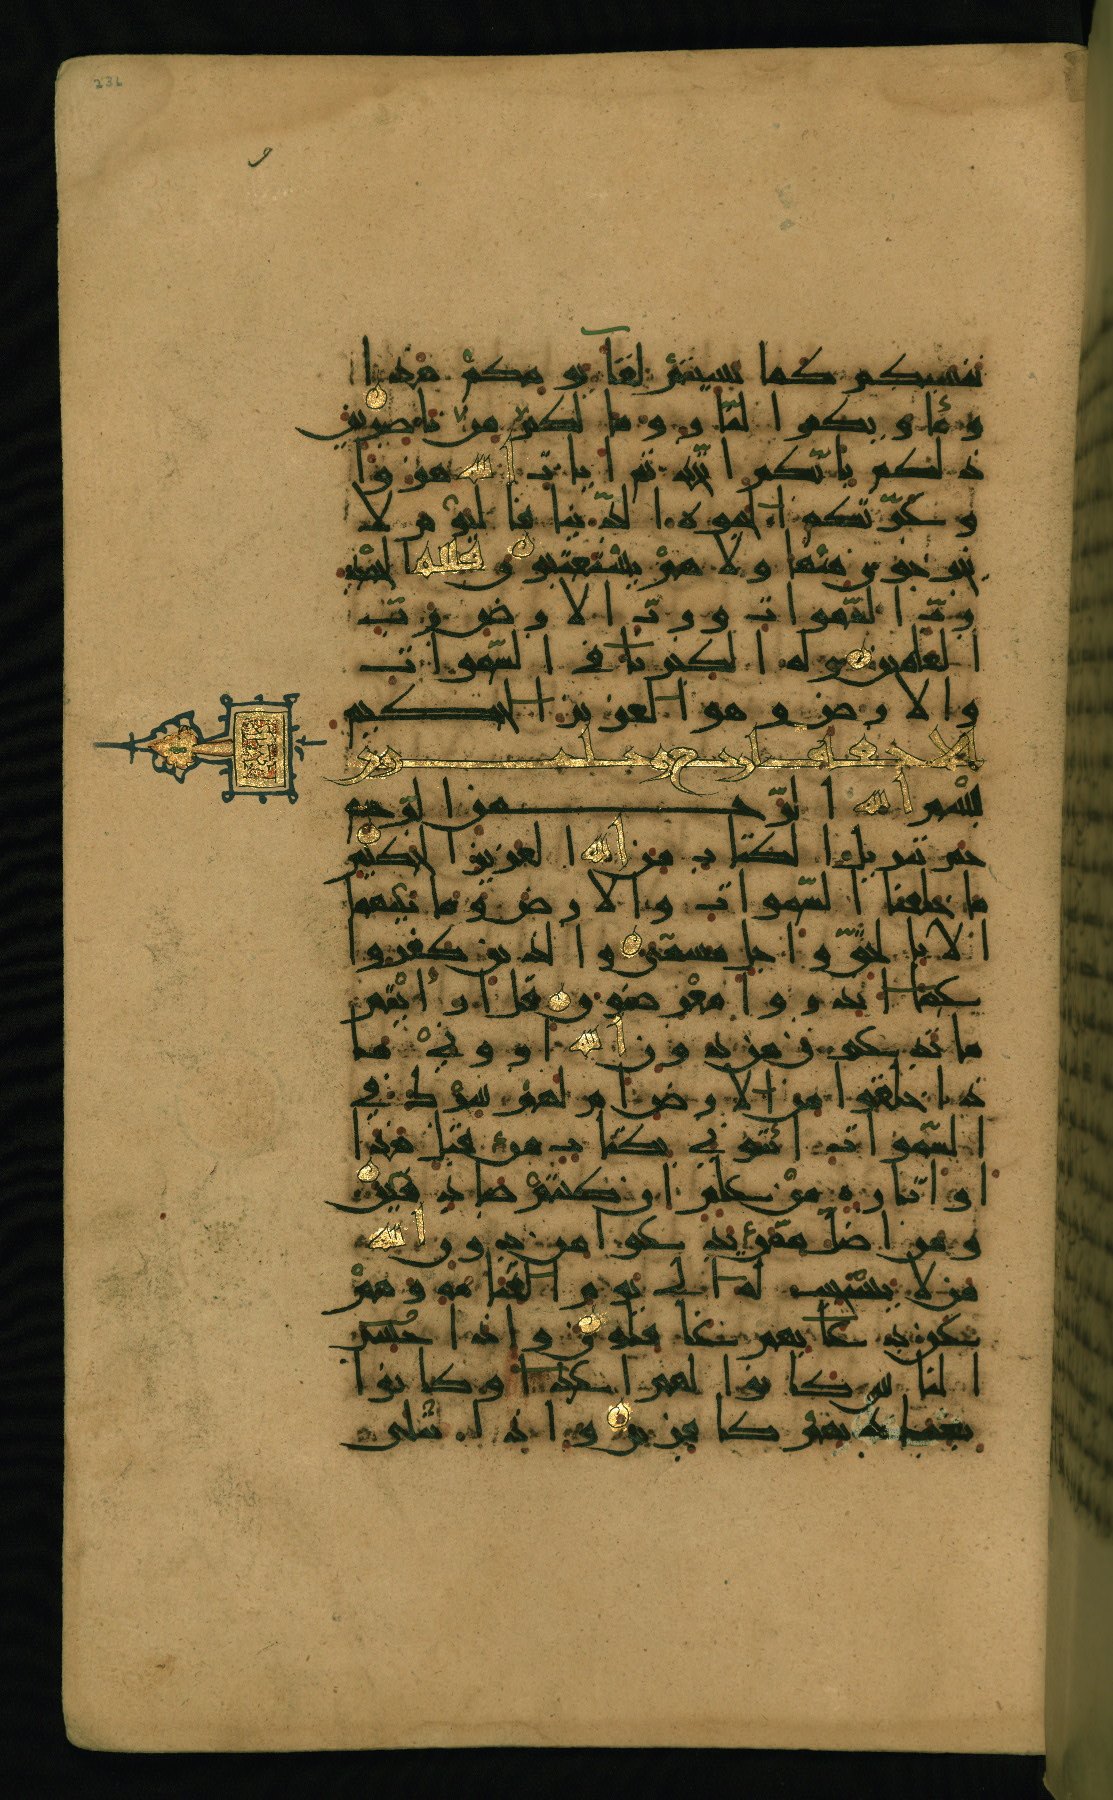 236
ننسىكم كما نسيتم لقا يومكم هذا
ومأويكم النار وما لكم من ناصرين
ذلكم بانكم اتخذتم ايات الله هزوا
وغرتكم الحيوة الدنيا فاليوم لا
يخرجون منها ولا هم يستعتبون فلله الحمد
رب السموات ورب الارض رب
العلمين وله الكبرياء في السموات
والارض وهو العزيز الحكيم
الاحقاف اربع وثلثون
بسم الله الرحمن الرحيم
حم تنزيل الكتاب من الله العزيز الحكيم
ما خلقنا السموات والارض وما بينهما
الا بالحق واجل مسمى والذين كفروا
عما انذروا معرضون قل ارايتم
ما تدعون من دون الله اروني ما
ذا خلقوا من الارض ام لهم شرك في
السموات ائتوني بكتاب من قبل هذا
او اثارة من علم ان كنتم صادقين
ومن اضل ممن يدعوا من دون الله
من لا يستجيب له الى يوم القيامة وهم
عن دعائهم غافلون واذا حشر
الناس كانوا لهم اعداء وكانوا
بعبادتهم كافرين واذا تتلى